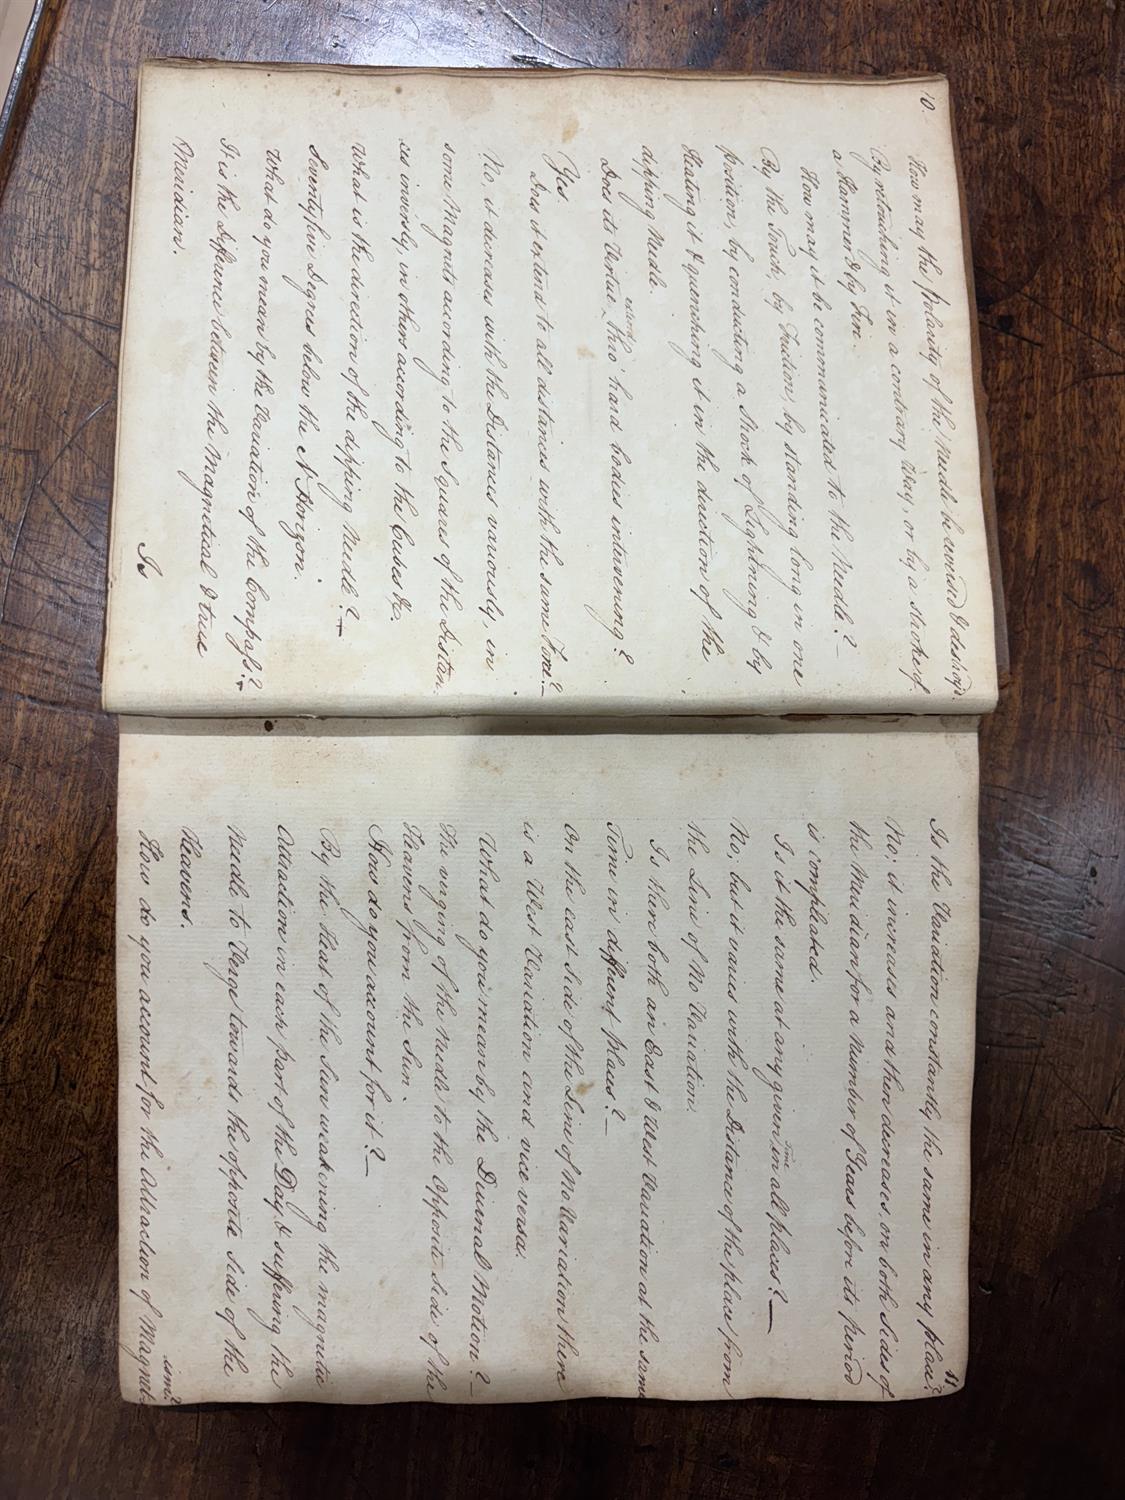 10.
How may the Polarity of the Needle be cured & destroy'd
By retouching it in a contrary Way, or by a stroke of
a Hammer & by Fire.
How may it be communicated to the Needle? –
By the Touch, by Friction, by standing long in one
position, by conducting a Stroke of Lightning & by
Heating it & quenching it in the direction of the
dipping Needle.
Does its Vertue extend thro' hard bodies intervening?
Yes
Does it extend to all distances with the same Force? –
No, it decreases with the Distances variously, in
some Magnets according to the Squares of the Distan
ces inversly, in others according to the Cubes &c.
What is the direction of the dipping Needle? –
Seventyfive Degrees below the N. Horizon.
What do you mean by the Variation of the Compass? –
It is the Difference between the Magnetical & true
Meridian.
Is
11
Is the Variation constantly the same in any place?
No; it increases and then decreases, on both Sides of
the Meridian for a Number of Years before its period
is compleated.
Is it the same at any given Time in all places? –
No, but it varies with the Distance of the place from
the Line of No Variation.
Is there both an East & West Variation at the same
Time in different places? –
On the east Side of the Line of No Variation there
is a West Variation and vice versa.
What do you mean by the Diurnal Motion? –
The verging of the Needle to the Opposite Side of the
Heavens from the Sun.
How do you account for it? –
By the Heat of the Sun weakening the magnetic
Attraction in each part of the Day, & suffering the
Needle to Verge towards the opposite Side of the
Heavens.
How do you account for the Attraction of Magnet
ism?